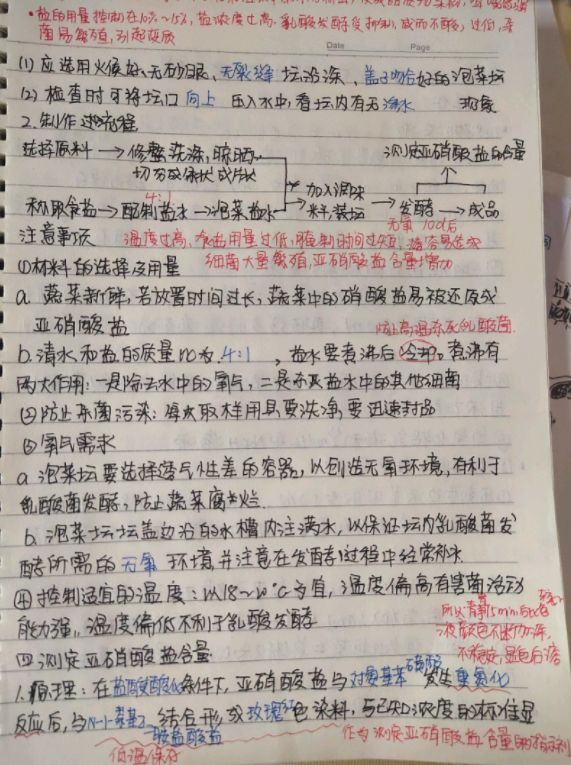 盐的用量控制在10%~15%, 盐浓度过高, 乳酸发酵受抑制, 咸而不酸, 过低, 杂
菌易繁殖, 引起变质
Date Page
(1) 应选用火候好、无砂眼、无裂缝 坛沿深、盖子吻合好的泡菜坛
(2) 检查时可将坛口向上 压入水中, 看坛内有无渗水 现象
2. 制作过程流程
测定亚硝酸盐的含量
选择原料 → 修整洗涤, 晾晒
切分成条状或片状
加入调味
料, 装坛 → 发酵 → 成品
4:1
称取食盐 → 配制盐水 → 泡菜盐水
无氧 10d后
注意事项 温度过高, 食盐用量过低, 腌制时间过短, 容易造成
细菌大量繁殖, 亚硝酸盐含量增加
①材料的选择及用量
a. 蔬菜新鲜, 若放置时间过长, 蔬菜中的硝酸盐易被还原成
亚硝酸盐
防止高温杀死乳酸菌
b. 清水和盐的质量比为 4:1 , 盐水要煮沸后冷却。煮沸有
两大作用: 一是除去水中的氧气, 二是杀灭盐水中的其他细菌
②防止杂菌污染: 每次取样用具要洗净, 要迅速封品
③氧气需求
a. 泡菜坛要选择透气性差的容器, 以创造无氧环境, 有利于
乳酸菌发酵, 防止蔬菜腐烂.
b. 泡菜坛坛盖边沿的水槽内注满水, 以保证坛内乳酸菌发
酵所需的无氧 环境, 并注意在发酵过程中经常补水
④控制适宜的温度: 以18~20℃为宜, 温度偏高有害菌活动
能力强, 温度偏低不利于乳酸发酵
所以静置15min后比色
液颜色不
不稳定, 显色后
四. 测定亚硝酸盐含量
1. 原理: 在盐酸酸化条件下, 亚硝酸盐与对氨基苯磺酸 发生重氮化
反应后, 与N-1-萘基乙二胺盐酸盐 结合形成玫瑰红色染料, 与已知浓度的标准显
低温保存
作为测定亚硝酸盐含量的指示剂